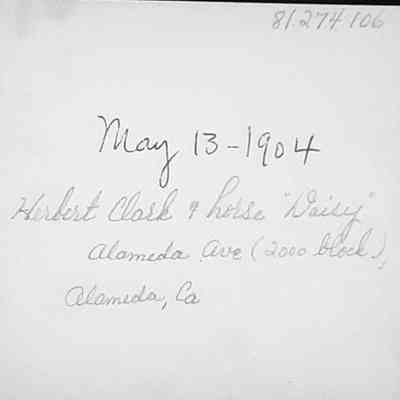 81.274.106
May 13-1904
Herbert Clark & horse "Daisy"
Alameda Ave (2000 block),
Alameda, Ca